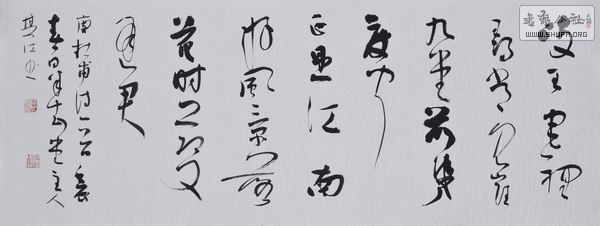 岐王宅裡
尋常見崔
九堂前幾
度聞
正是江南
好風景落
花時節又
逢君
唐杜甫詩一首
春日
主人
書法公社